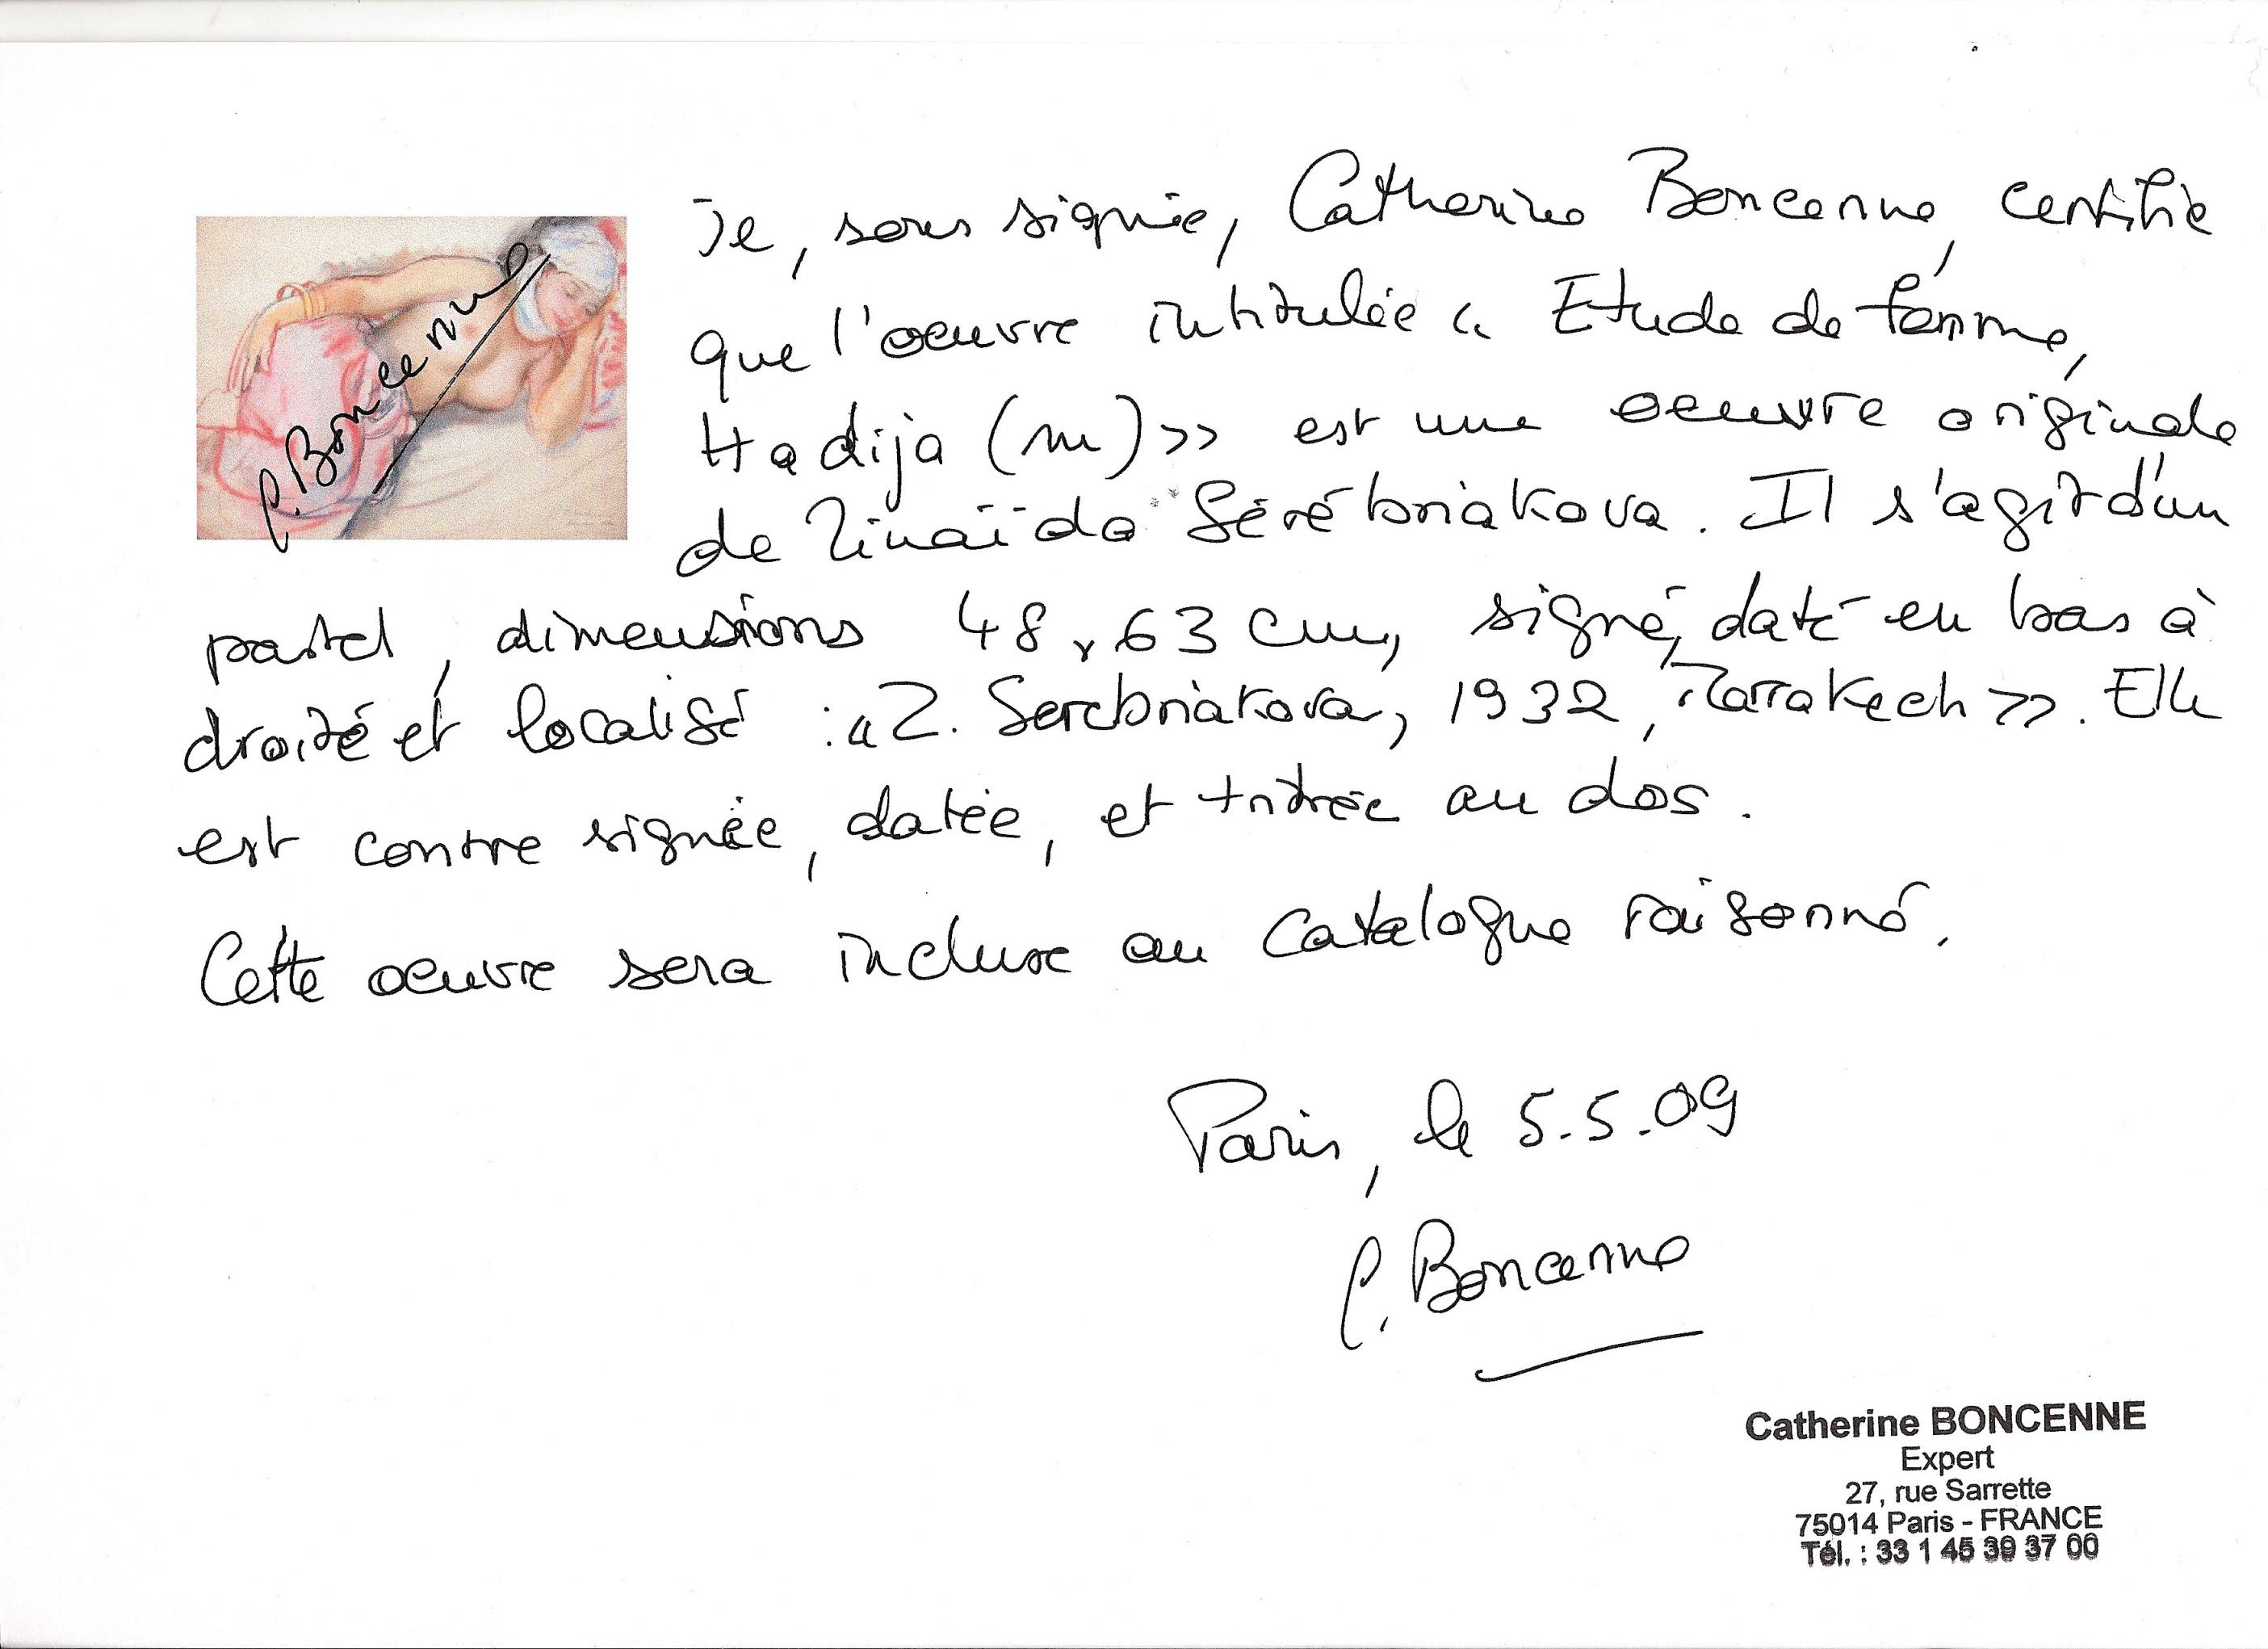 Je, sous signée, Catherine Boncenne, certifie
que l'oeuvre intitulée « Etude de femme,
Hadija (m) >> est une oeuvre originale
de Zinaïda Sérébriakova. Il s'agit d'un
pastel, dimensions 48 x 63 cm, signé, daté en bas à
droite et localisé : « Z. Serebriakova, 1932, Marrakech >>. Elle
est contre signée, datée, et titrée au dos.
Cette oeuvre sera incluse au Catalogue raisonné.
C. Boncenne
Paris, le 5.5.09
C. Boncenne
Catherine BONCENNE
Expert
27, rue Sarrette
75014 Paris - FRANCE
Tél. : 33 1 45 39 37 00